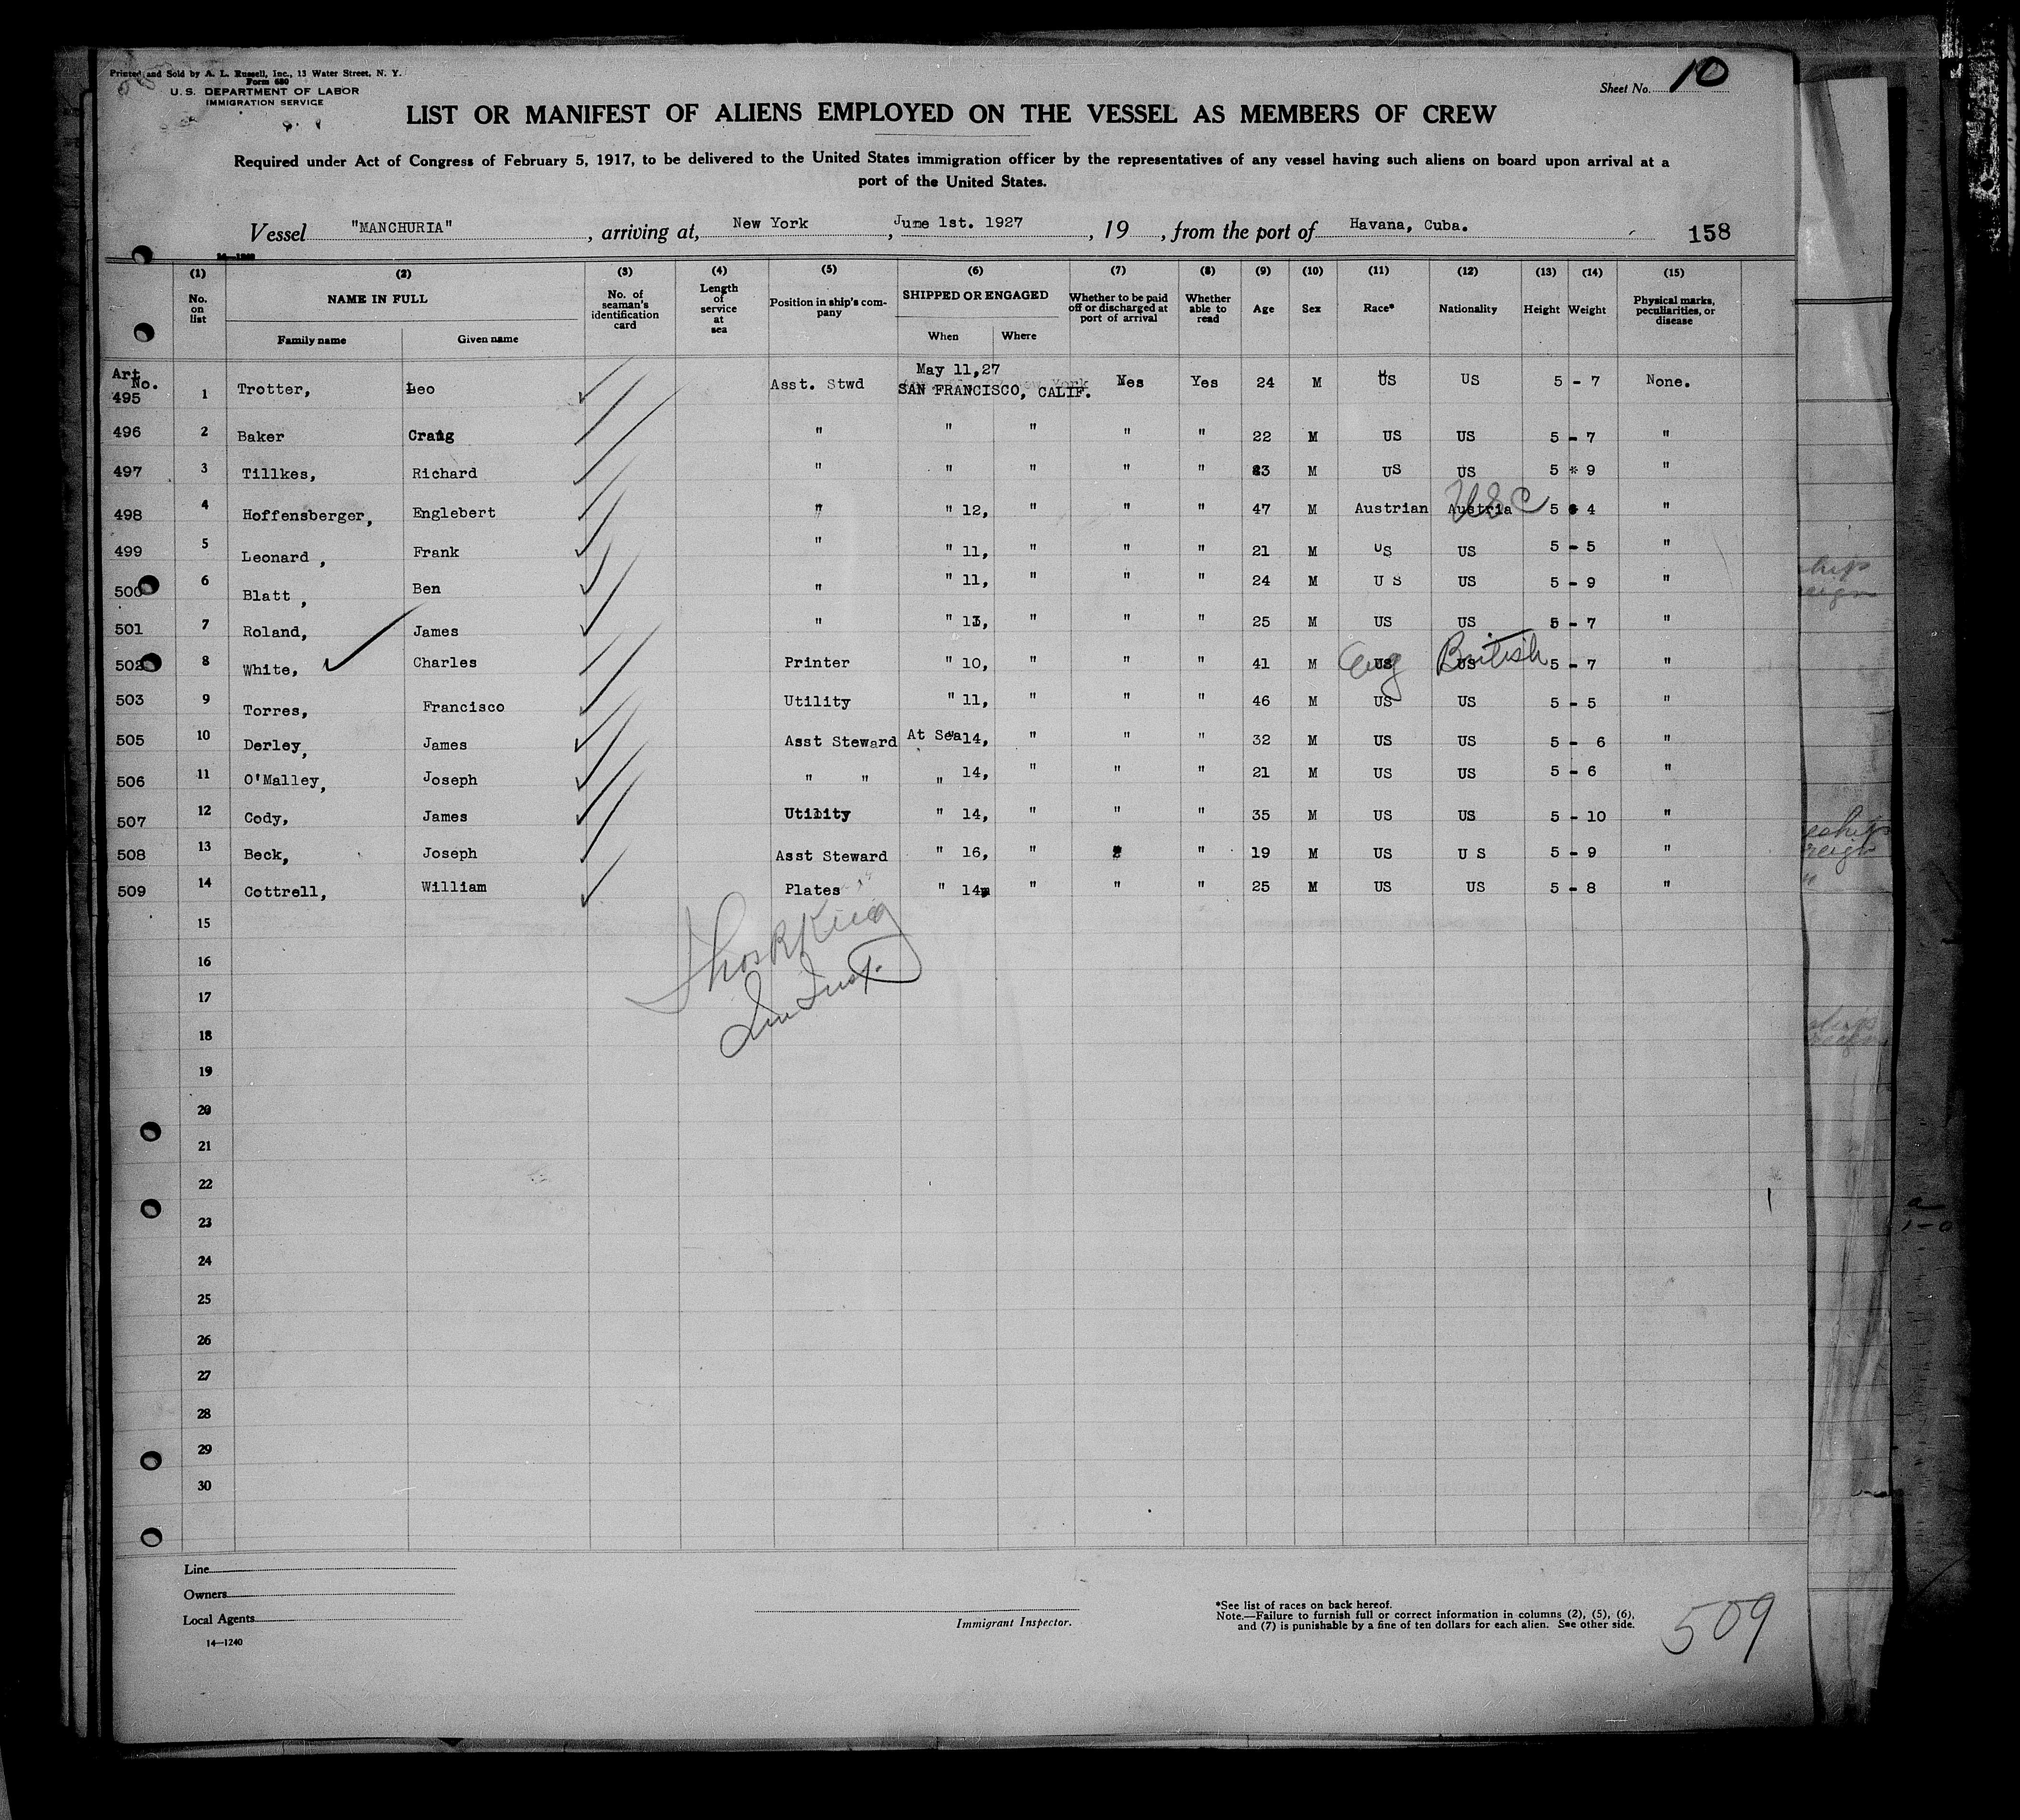 Printed and Sold by A. L. Russell, Inc., 13 Water Street, N. Y.
Form 680
U. S. DEPARTMENT OF LABOR
IMMIGRATION SERVICE
Sheet No. 10
LIST OR MANIFEST OF ALIENS EMPLOYED ON THE VESSEL AS MEMBERS OF CREW
Required under Act of Congress of February 5, 1917, to be delivered to the United States immigration officer by the representatives of any vessel having such aliens on board upon arrival at a
port of the United States.
Vessel "MANCHURIA", arriving at, New York, June 1st. 1927, 19, from the port of Havana, Cuba. 158
(1) (2) (3) (4) (5) (6) (7) (8) (9) (10) (11) (12) (13) (14) (15)
No. on list NAME IN FULL Family name Given name No. of seaman's identification card Length of service at sea Position in ship's company SHIPPED OR ENGAGED When Where Whether to be paid off or discharged at port of arrival Whether able to read Age Sex Race* Nationality Height Weight Physical marks, peculiarities, or disease
Art No.
May 11,27
495 1 Trotter, Leo Asst. Stwd SAN FRANCISCO, CALIF. Yes Yes 24 M US US 5 - 7 None.
496 2 Baker Craig " " " " " 22 M US US 5 - 7 "
497 3 Tillkes, Richard " " " " " 23 M US US 5 * 9 "
498 4 Hoffensberger, Englebert " " 12, " " " 47 M Austrian Austria USC 5 4 "
499 5 Leonard , Frank " " 11, " " " 21 M US US 5 - 5 "
500 6 Blatt , Ben " " 11, " " " 24 M U S US 5 - 9 "
501 7 Roland, James " " 13, " " " 25 M US US 5 - 7 "
502 8 White, Charles Printer " 10, " " " 41 M US Eng US British 5 - 7 "
503 9 Torres, Francisco Utility " 11, " " " 46 M US US 5 - 5 "
505 10 Derley, James Asst Steward At Sea "14, " " " 32 M US US 5 - 6 "
506 11 O'Malley, Joseph " " " 14, " " " 21 M US US 5 - 6 "
507 12 Cody, James Utility " 14, " " " 35 M US US 5 - 10 "
508 13 Beck, Joseph Asst Steward " 16, " " " 19 M US U S 5 - 9 "
509 14 Cottrell, William Plates " 14 " " " 25 M US US 5 - 8 "
15
16
17
18
19
20
21
22
23
24
25
26
27
28
29
30
Line
Owners
Local Agents
14—1240
Immigrant Inspector.
*See list of races on back hereof.
Note.—Failure to furnish full or correct information in columns (2), (5), (6),
and (7) is punishable by a fine of ten dollars for each alien. See other side.
509